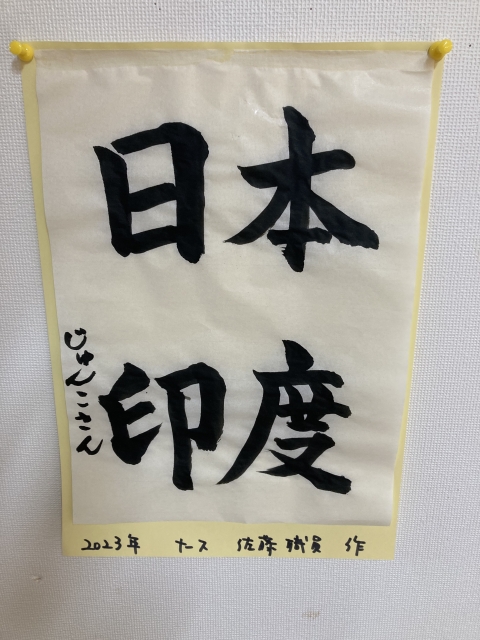 日本
印度
じゅんこさん
2023年 ナース 佐藤職員 作